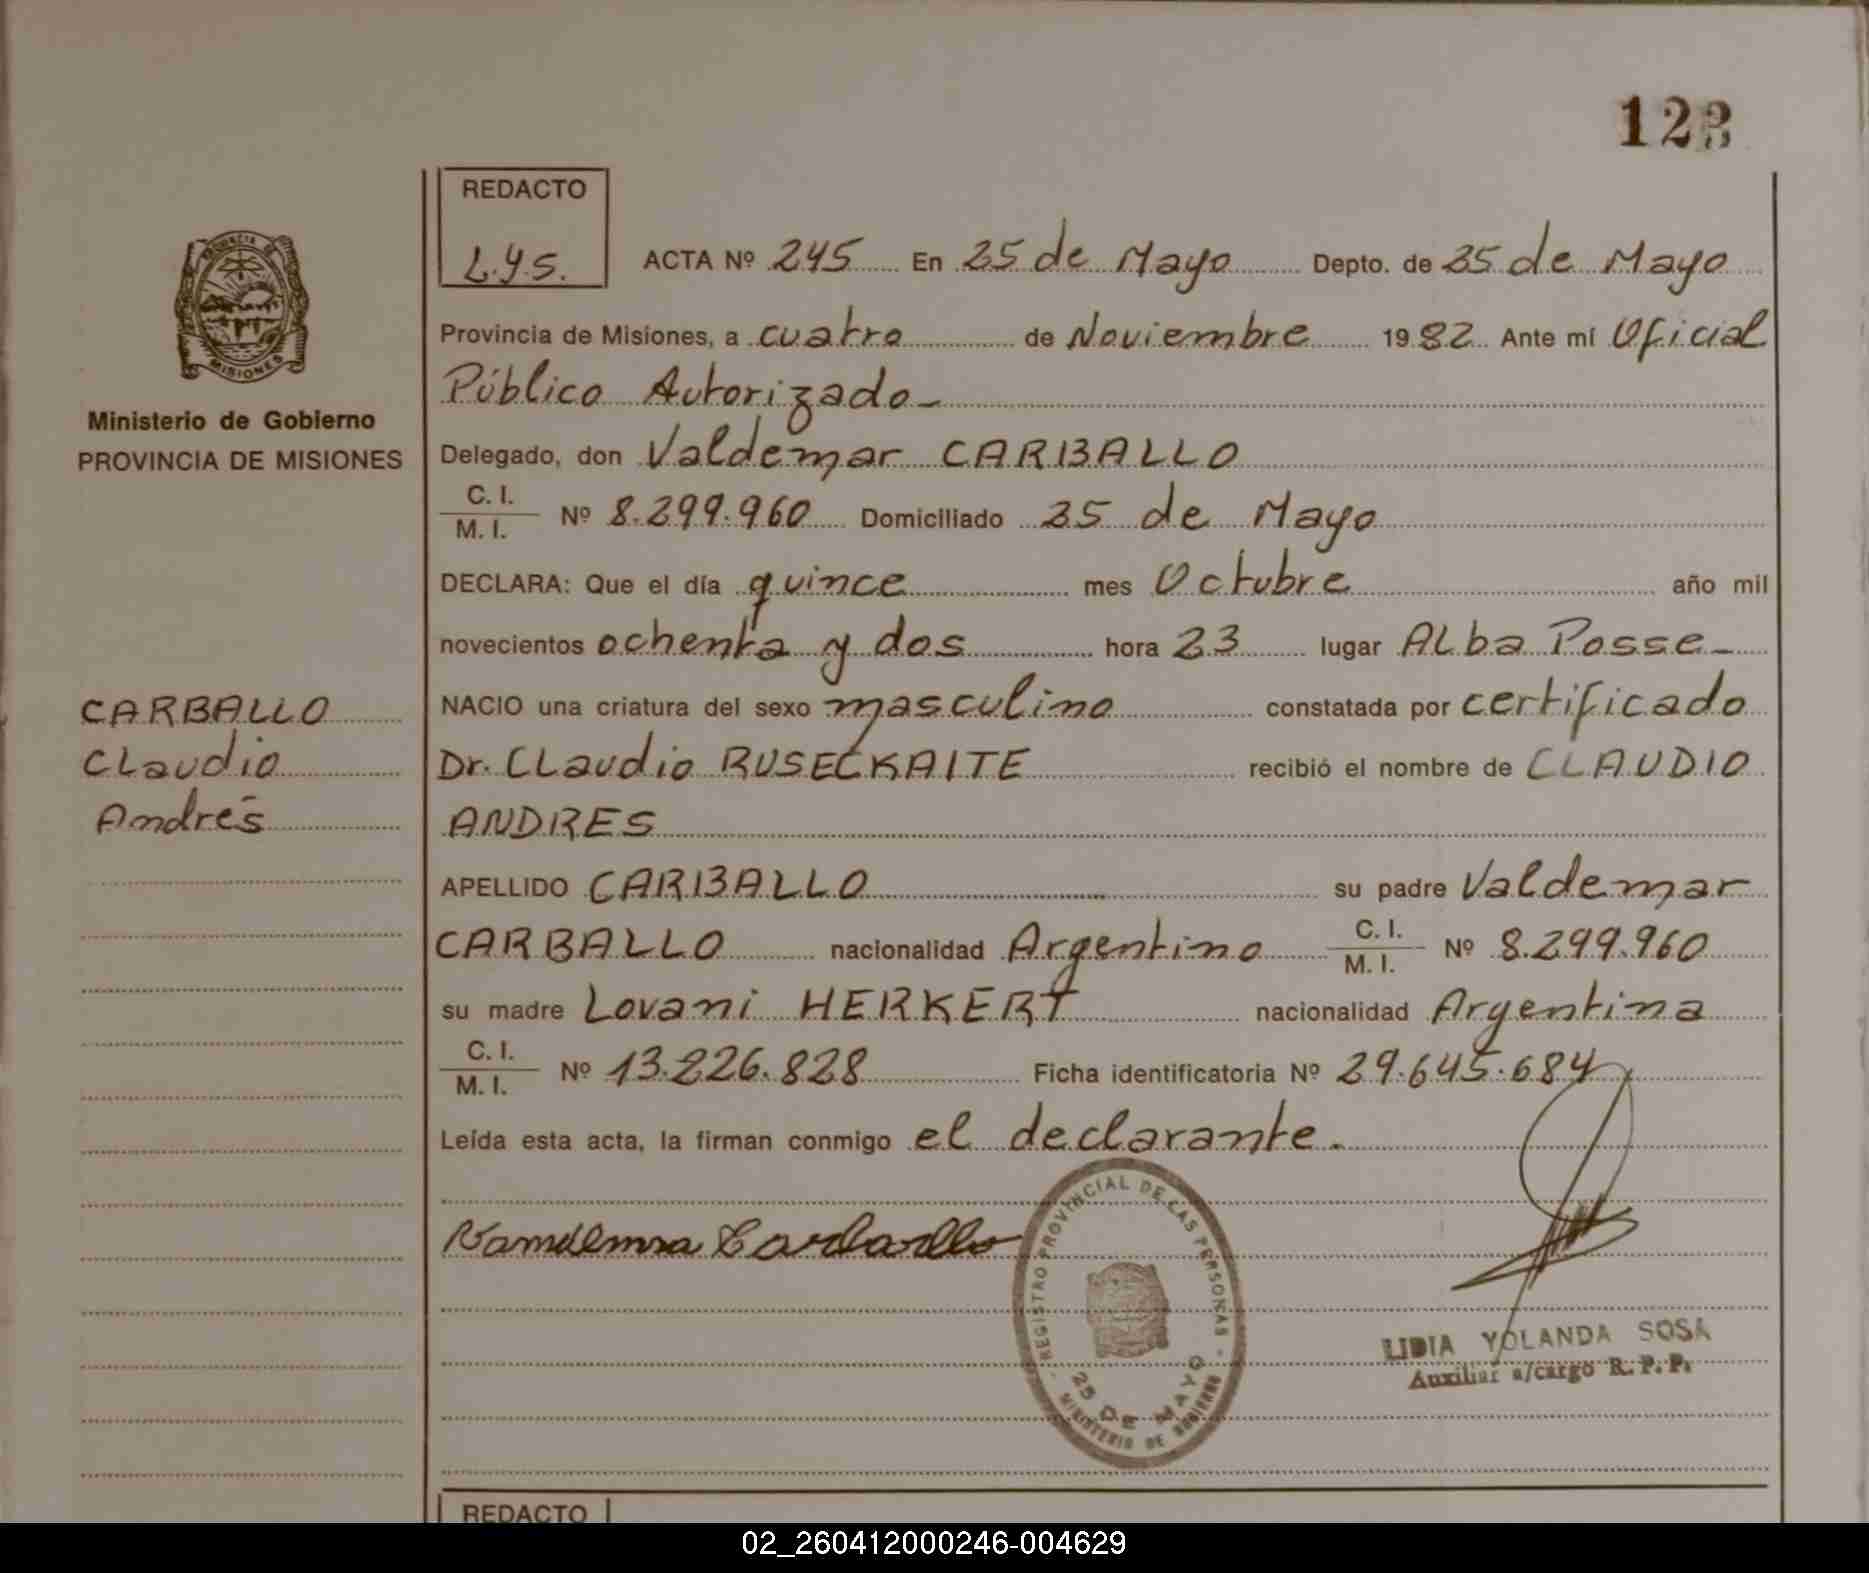 123
REDACTO
L.Y.S.
ACTA Nº 245 En 25 de Mayo Depto. de 25 de Mayo
Provincia de Misiones, a cuatro de Noviembre 1982 Ante mí Oficial
Público Autorizado-
Delegado, don Valdemar CARBALLO
C. I.
M. I.
Nº 8.299.960 Domiciliado 25 de Mayo
DECLARA: Que el día quince mes Octubre año mil
novecientos ochenta y dos hora 23 lugar Alba Posse-
NACIO una criatura del sexo masculino constatada por certificado
Dr. Claudio RUSECKAITE recibió el nombre de CLAUDIO
ANDRES
APELLIDO CARBALLO su padre Valdemar
CARBALLO nacionalidad Argentino C. I. M. I. Nº 8.299.960
su madre Lovani HERKERT nacionalidad Argentina
C. I.
M. I.
Nº 13.226.828 Ficha identificatoria Nº 29.645.684
Leída esta acta, la firman conmigo el declarante.
PROVINCIA DE
MISIONES
Ministerio de Gobierno
PROVINCIA DE MISIONES
CARBALLO
Claudio
Andrés
Carballo
REGISTRO PROVINCIAL DE LAS PERSONAS
25 DE MAYO
MINISTERIO DE GOBIERNO
LIDIA YOLANDA SOSA
Auxiliar a/cargo R. P. P.
REDACTO
02_260412000246-004629